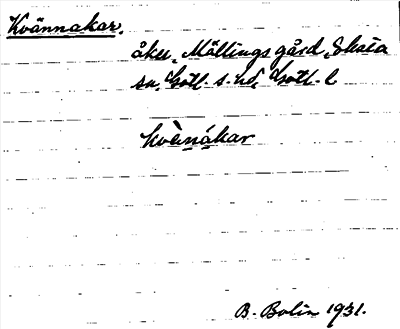 Kvännakar.
åker, Mällings gård, Eksta
sn, Gotl. s. hd, Gotl. l
kvènákar
B. Bolin 1931.